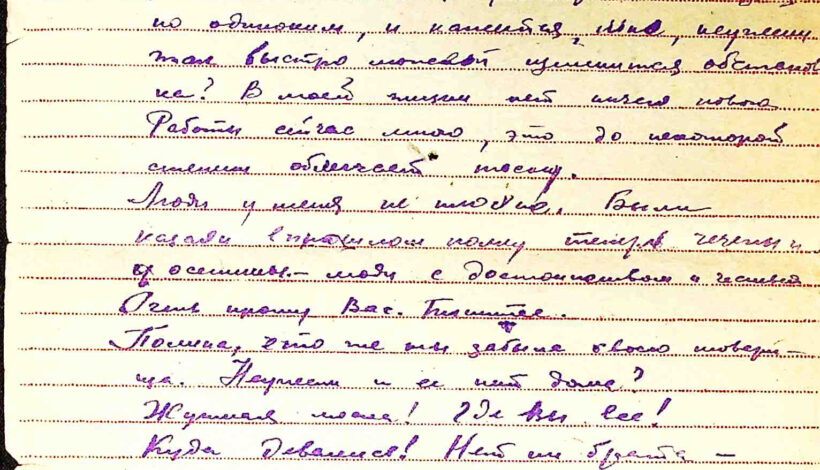 но одиноким, и кажется, мне, неужели
так быстро может измениться обстанов
ка? В моей жизни нет ничего нового
Работы сейчас много, это до некоторой
степени облегчает тоску.
Люди у меня не плохие. Были
казаки в прошлом полку теперь чечены и
осетины — люди с достоинством и честью
Очень прошу Вас. Пишите.
Полина, что же ты забыла своего товари-
ща. Неужели и ее нет дома?
Жуткая мысль! Где вы все!
Куда девались! Нет ни брата —